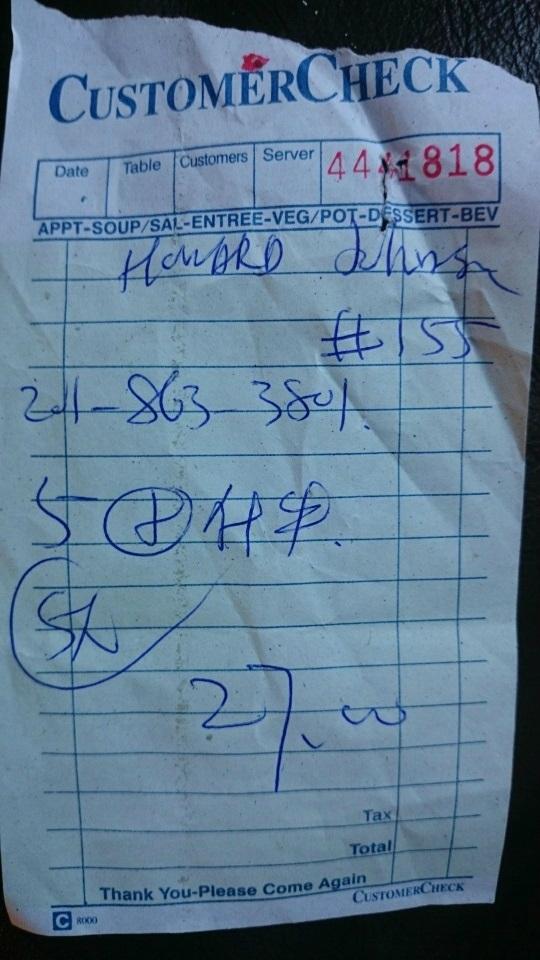 CUSTOMERCHECK
Date Table Customers Server 4441818
APPT-SOUP/SAL-ENTREE-VEG/POT-DESSERT-BEV
HOWARD Johnson
#155
201-863-3801.
5
27.00
Tax
Total
Thank You-Please Come Again CUSTOMERCHECK
C 8000